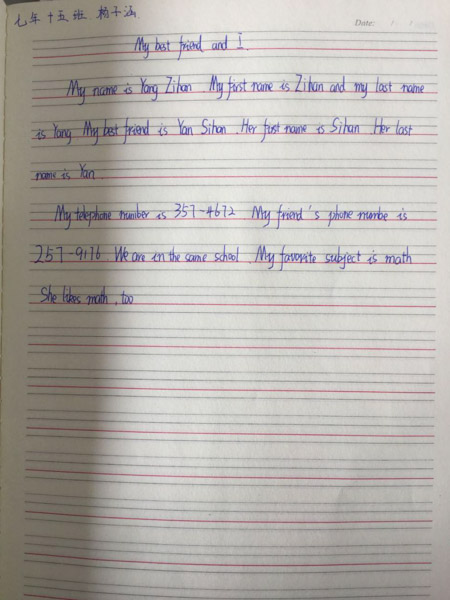 七年十五班 杨子涵
Date:
My best friend and I.
My name is Yang Zihan My first name is Zihan and my last name
is Yang My best friend is Yan Sihan. Her first name is Sihan Her last
name is Yan.
My telephone number is 357-4672 My friend's phone numbe is
257-9176. We are in the same school. My favorite subject is math
She likes math, too